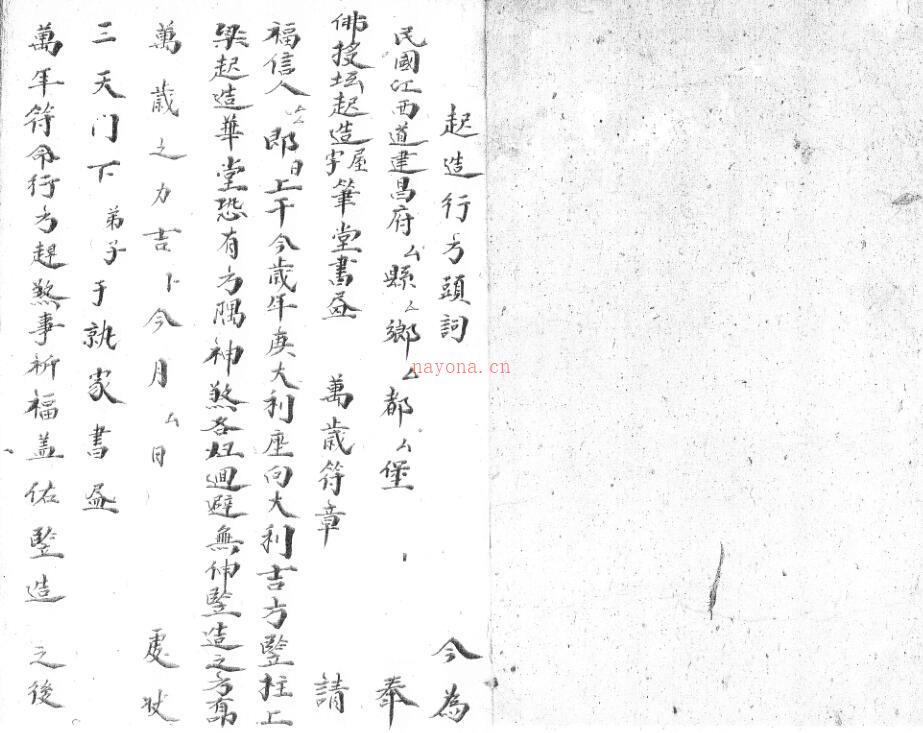 起造行方頭詞 今為
民國江西道建昌府厶縣厶鄉厶都厶堡 奉
佛授坛起造屋宇筆堂書 萬歲符章 請
福信人厶郎日上干今歲年庚大利座向大利吉方豎拄上
梁起造華堂恐有方隅神煞各 迴避無伸豎造之方
萬歲之力吉卜今月厶日 處狀
三天门下弟子于執家書
萬年符命行方趕煞事祈福盖佑豎造之後
nayona.cn